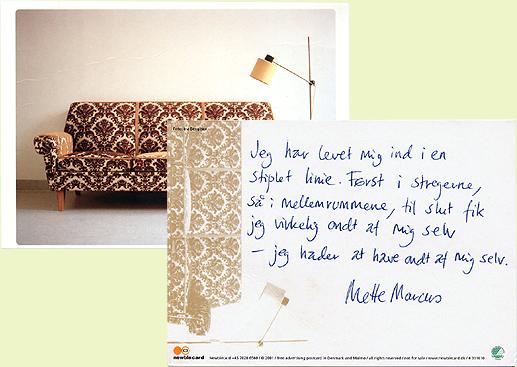 Jeg har levet mig ind i en
stiplet linie. Først i stregerne,
så i mellemrummene, til slut fik
jeg virkelig ondt af mig selv
– jeg hader at have ondt af mig selv.
Mette Marcus
newbiecard newbiecard +45 7020 0560 / © 2001 / free advertising postcard in Denmark and Malmö / all rights reserved / not for sale / www.newbiecard.dk /